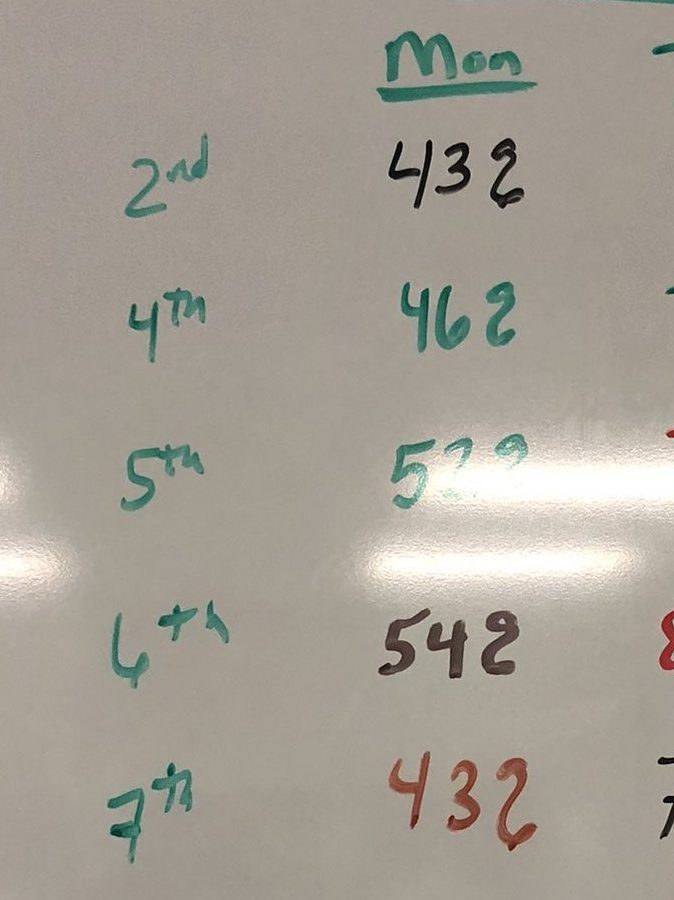 Mon
2nd 438
4th 468
5th
6th 548
7th 438